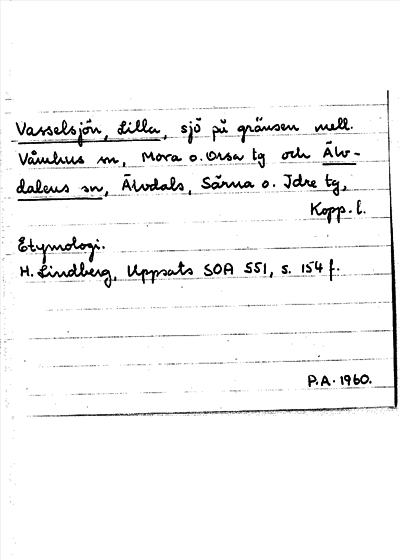 Vasselsjön, Lilla, sjö på gränsen mell.
Våmhus sn, Mora o. Orsa tg och Älv-
dalens sn, Älvdals, Särna o. Idre tg,
Kopp. l.
Etymologi.
H. Lindberg, Uppsats SOA 551, s. 154 f.
P.A. 1960.